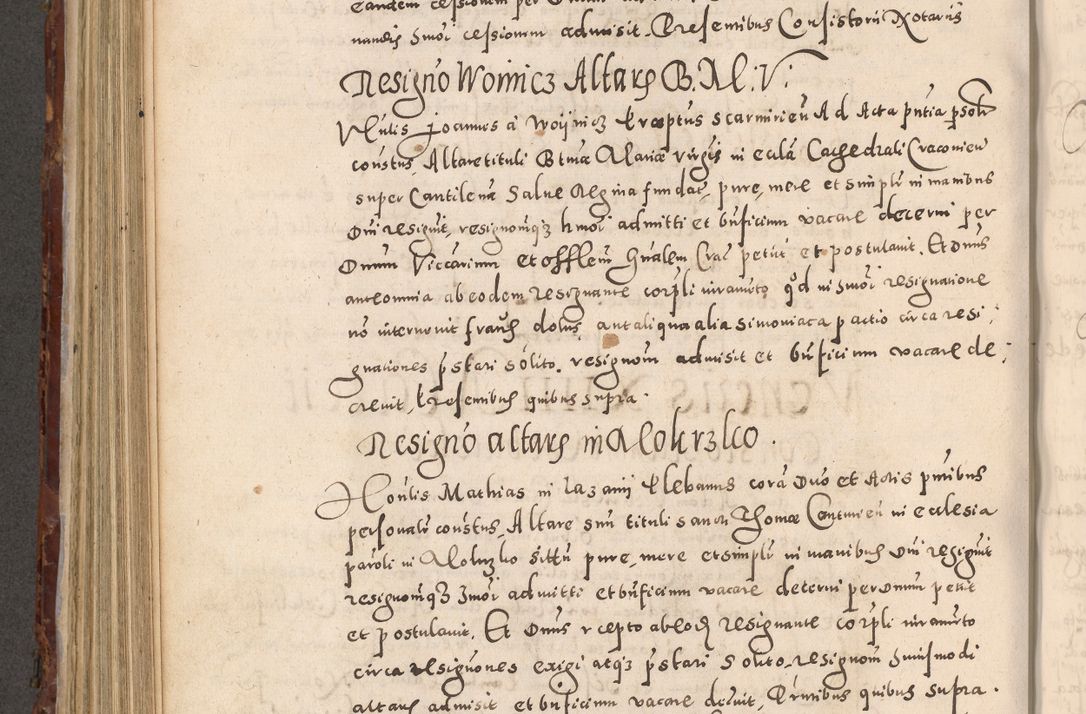 eandem cessionem per
nandis hmoi cessionem admisit. Presentibus Consistorii Notariis
Resignõ Woinicz Altaris B. M. V.
Vĩlis Joannes à Woÿnicz Præptus Scarmirieñ Ad Acta pñtia psolr
coñstus, Altare tituli Btmæ Mariæ virgĩs in ecclã Cathedrali Cracovieñ
super Cantilenã Salve Regina fundat, pure, mere et simplr in manibus
Dñi resignit, resignomqz hmoi admitti et bñficium vacare decerni per
Dnum Viccarium et offlem Gñalem Crac petiit et postulavit. Et Dnus
ante omnia ab eodem resignante corpli iuramto qd in hmoi resignatione
nõ intervenit fraus dolus, aut aliqua alia simoniaca pactio circa resi:
gnationes pstari solito. resignom admisit et bñficium vacare de:
crevit, Presentibus quibus supra.
Resignõ altaris in Mokrzko.
Honlis Mathias in Lazanij Plebanus corã Dno et Actis pñtibus
personalr coñstus, Altare sui tituli sancti Thomæ Canturieñ in ecclesia
paroli in Mokrzko sittũ pure, mere et simplr in manibus Dni resignit
resignomqz hmoi admitti et bñficium vacare decerni per Dnum petiit
et postulavit. Et Dnus recepto ab eod resignante corpli iuramto
circa resignones exigi atqz pstari solito. resignom huiusmodi
altaris admisit et bñficium vacare decrevit, Pñtibus quibus supra.